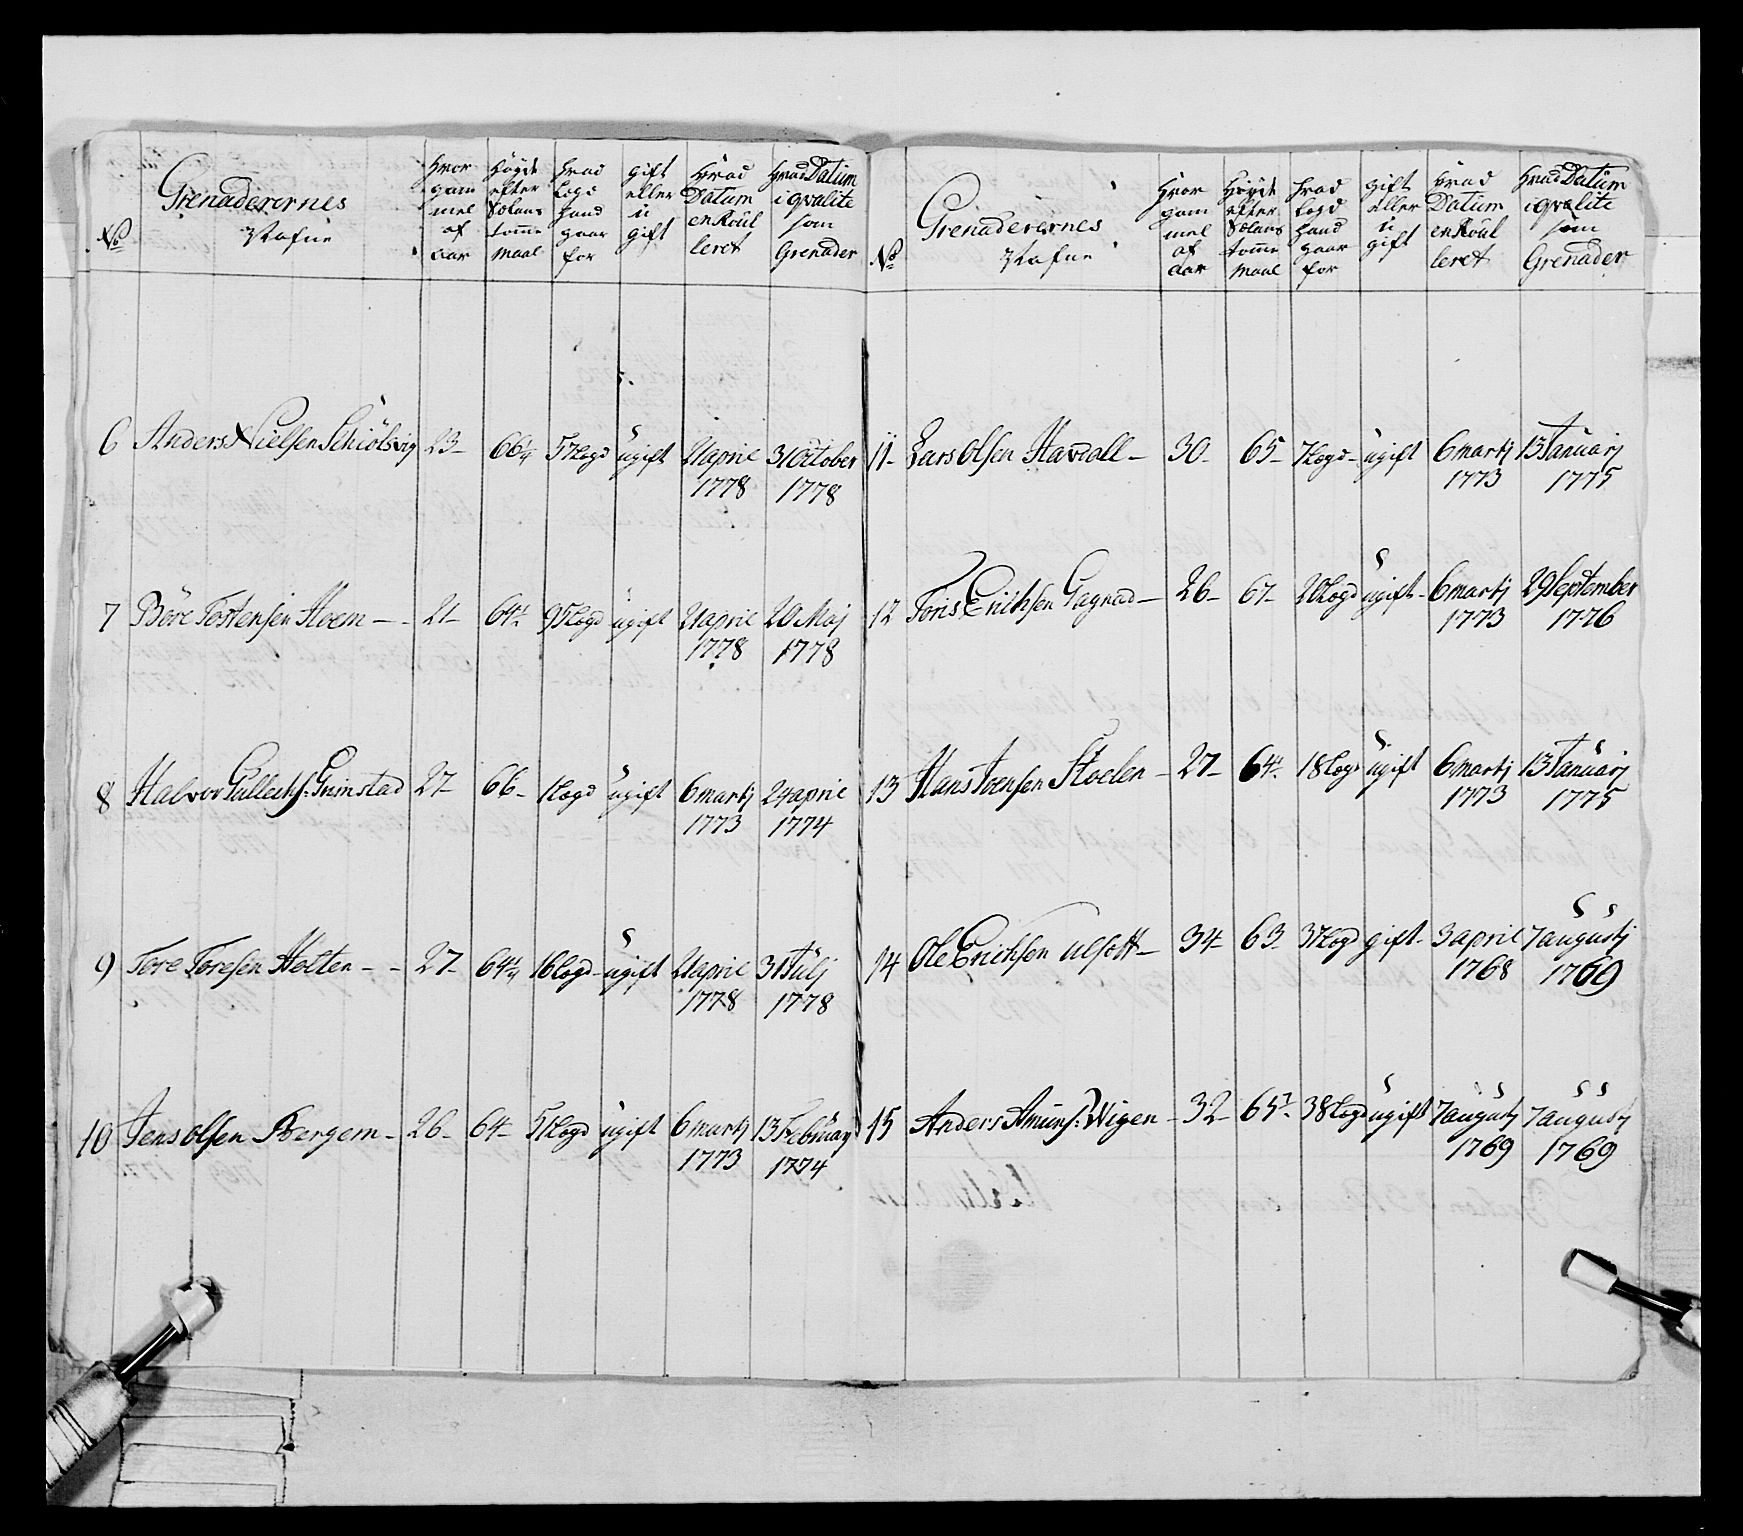 No
Grenaderernes
Nafne
Hvor
gam
mel
af
aar
Höyde
efter
Solans
tomme
maal
hvad
Legd
hand
gaar
for
gift
eller
u
gift
Hvad
Datum
enRoul
leret
hvad Datum
i qvalite
som
Grenader
6 Anders Nielsen Schiölsvig 23- 66¼ 57Legd ugift 21april 31October
1778 1778
7 Böre Tostensen Hoem - - 21- 64½ 95Legd ugift 21april 20 Maj
1778 1778
8 Halvor Gullechs: Grimstad 27- 66- 1Legd ugift 6martj 24april
1773 1774
9 Tore Toresen Holten - - 27- 64¼ 16Legd- ugift 21april 31Julj
1778 1778
10 Jens olsen Bergem- 26- 64- 51Legd ugift 6martj 13Februarj
1773 1774
No
Grenaderernes
Nafne
Hvor
gam
mel
af
aar
Höyde
efter
Solans
tomme
maal
hvad
Legd
hand
gaar
for
gift
eller
u
gift
hvad
Datum
enRoul
leret
hvad Datum
i qvalite
som
Grenader
11- Lars olsen Havdall- 30- 65- 7Legd- ugift 6martj 13Januarj
1773 1775
12 Joris Erichsen Gagnad- 26- 67- 20Legd ugift- 6martj 29September
1773 1776
13 Hans Joensen Stoelen- 27- 64- 18Legd ugift 6martj 13Januarj
1773 1775
14 Ole Erichsen - 34- 63- 37Legd gift- 3april 7augustj
1768 1769
15 Anders Amuns: Wigen- 32- 65½- 38Legd ugift 7augustj 7augustj
1769 1769